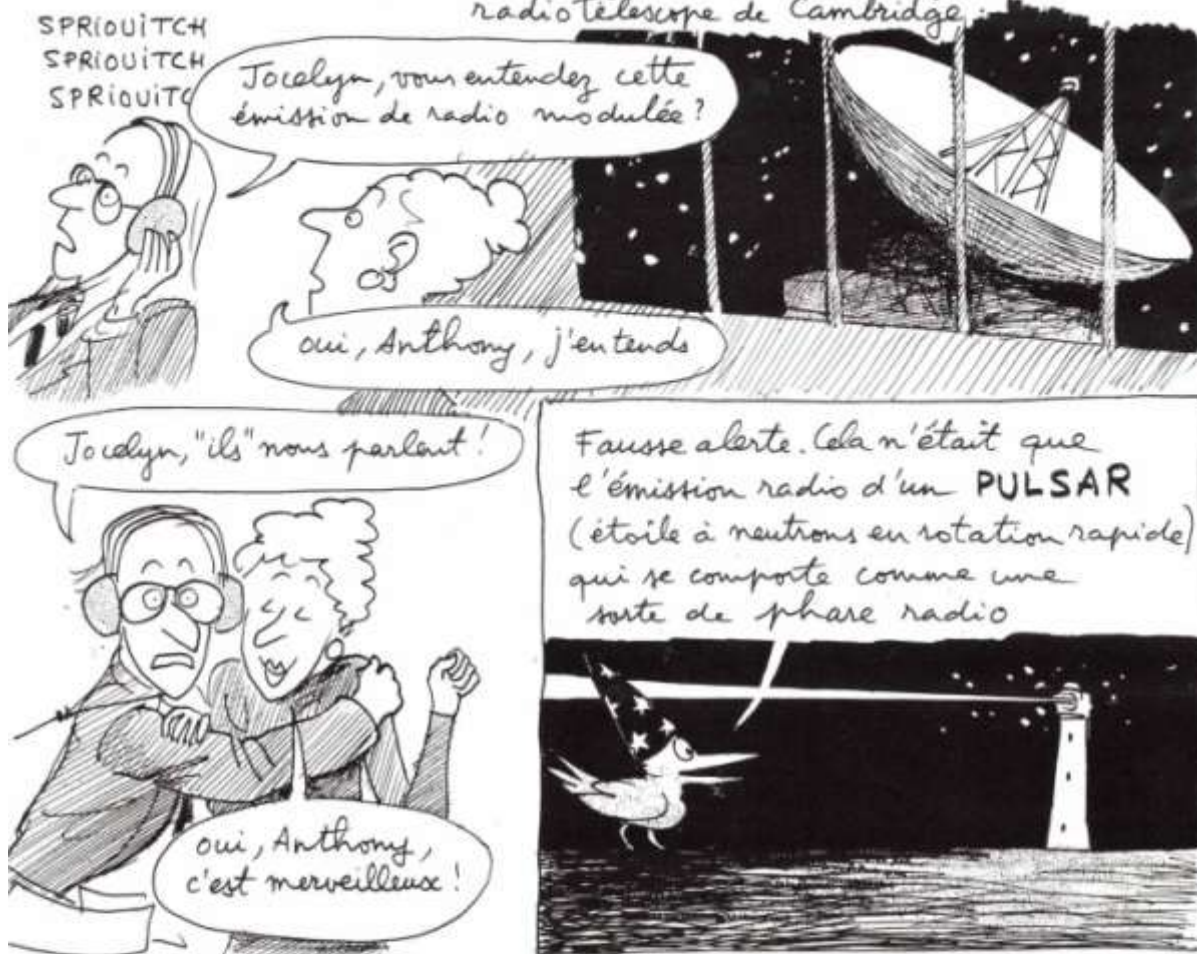 radiotélescope de Cambridge :
SPRIOUITCH
SPRIOUITCH
SPRIOUITC
Jocelyn, vous entendez cette
émission de radio modulée ?
oui, Anthony, j'entends
Jocelyn, "ils" nous parlent !
oui, Anthony,
c'est merveilleux !
Fausse alerte. Cela n'était que
l'émission radio d'un PULSAR
(étoile à neutrons en rotation rapide)
qui se comporte comme une
sorte de phare radio